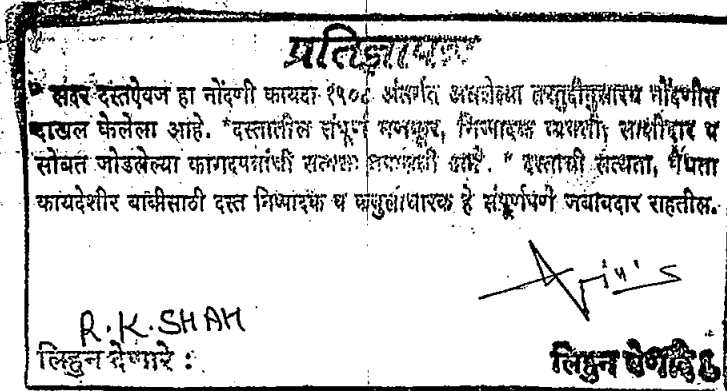 प्रतिज्ञापत्र
" सदर दस्तऐवज हा नोंदणी कायदा १९०८ अंतर्गत असलेल्या तरतुदीनुसारच नोंदणीस
दाखल केलेला आहे. "दस्तातील संपूर्ण मजकूर, निष्पादक व्यक्ती, साक्षीदार व
सोबत जोडलेल्या कागदपत्रांची सत्यता तपासली आहे. " दस्ताची सत्यता, वैधता
कायदेशीर बाबीसाठी दस्त निष्पादक व कबुलीधारक हे संपूर्णपणे जबाबदार राहतील.
R.K.SHAH
लिहुन देणारे :
लिहुन घेणारे